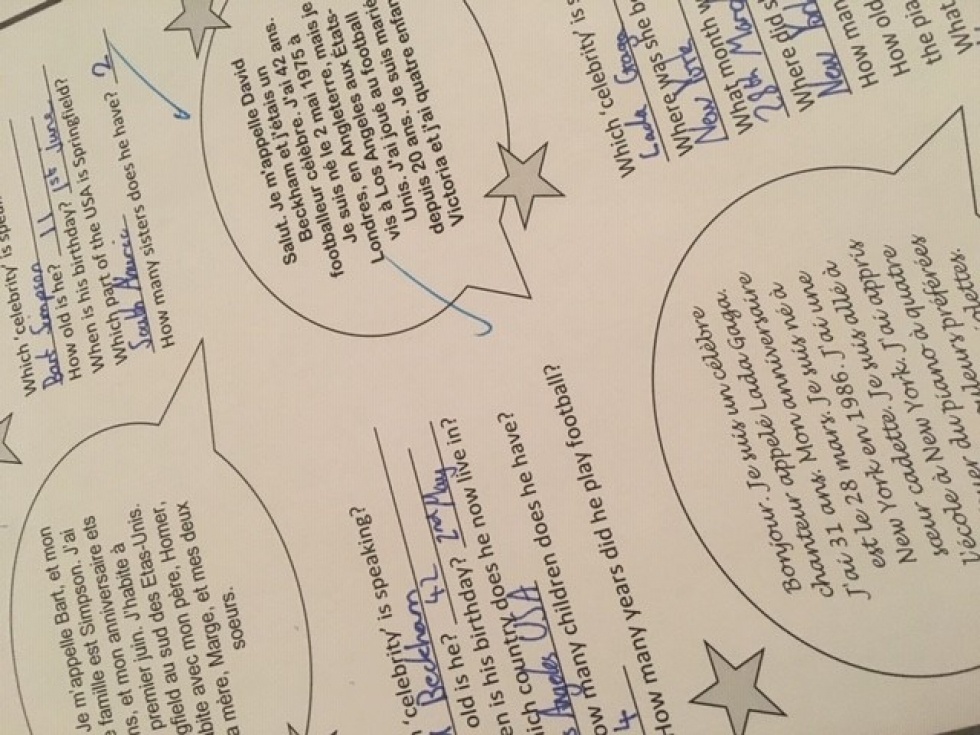 Je m'appelle Bart, et mon
famille est Simpson. J'ai
ns, et mon anniversaire ets
premier juin. J'habite à
gfield au sud des Etas-Unis.
bite avec mon père, Homer,
mère, Marge, et mes deux
soeurs.
Which 'celebrity' is speak
Bart Simpson
How old is he? 11 1st june
When is his birthday?
Which part of the USA is Springfield?
South
How many sisters does he have? 2
'celebrity' is speaking?
Beckham
old is he? 42 2nd May
en is his birthday?
hich country does he now live in?
s Angeles USA
ow many children does he have?
4
How many years did he play football?
Salut. Je m'appelle David
Beckham et j'étais un
footballeur célèbre. J'ai 42 ans.
Je suis né le 2 mai 1975 à
Londres, en Angleterre, mais je
vis à Los Angeles aux États-
Unis. J'ai joué au football
depuis 20 ans. Je suis marié
Victoria et j'ai quatre enfan
Bonjour. Je suis un célèbre
chanteur appelé Lada Gaga.
J'ai 31 ans. Mon anniversaire
est le 28 mars. Je suis né à
New York en 1986. J'ai une
sœur cadette. Je suis allé à
l'école à New York. J'ai appris
er du piano à quatre
illeurs préférées
dettes.
Which 'celebrity' is s
Lada Gaga
Where was she b
New York
What month w
28th
Where did s
New
How man
How old
the pia
What